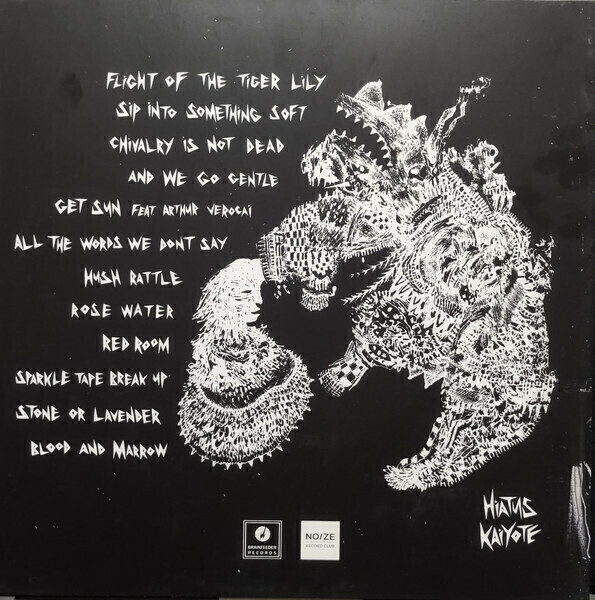 FLIGHT OF THE TIGER LILY
SIP INTO SOMETHING SOFT
CHIVALRY IS NOT DEAD
AND WE GO GENTLE
GET SUN FEAT. ARTHUR VEROCAI
ALL THE WORDS WE DONT SAY
HUSH RATTLE
ROSE WATER
RED ROOM
SPARKLE TAPE BREAK UP
STONE OR LAVENDER
BLOOD AND MARROW
HIATUS
KAIYOTE
BRAINFEEDER
RECORDS
NO/ZE
RECORD CLUB